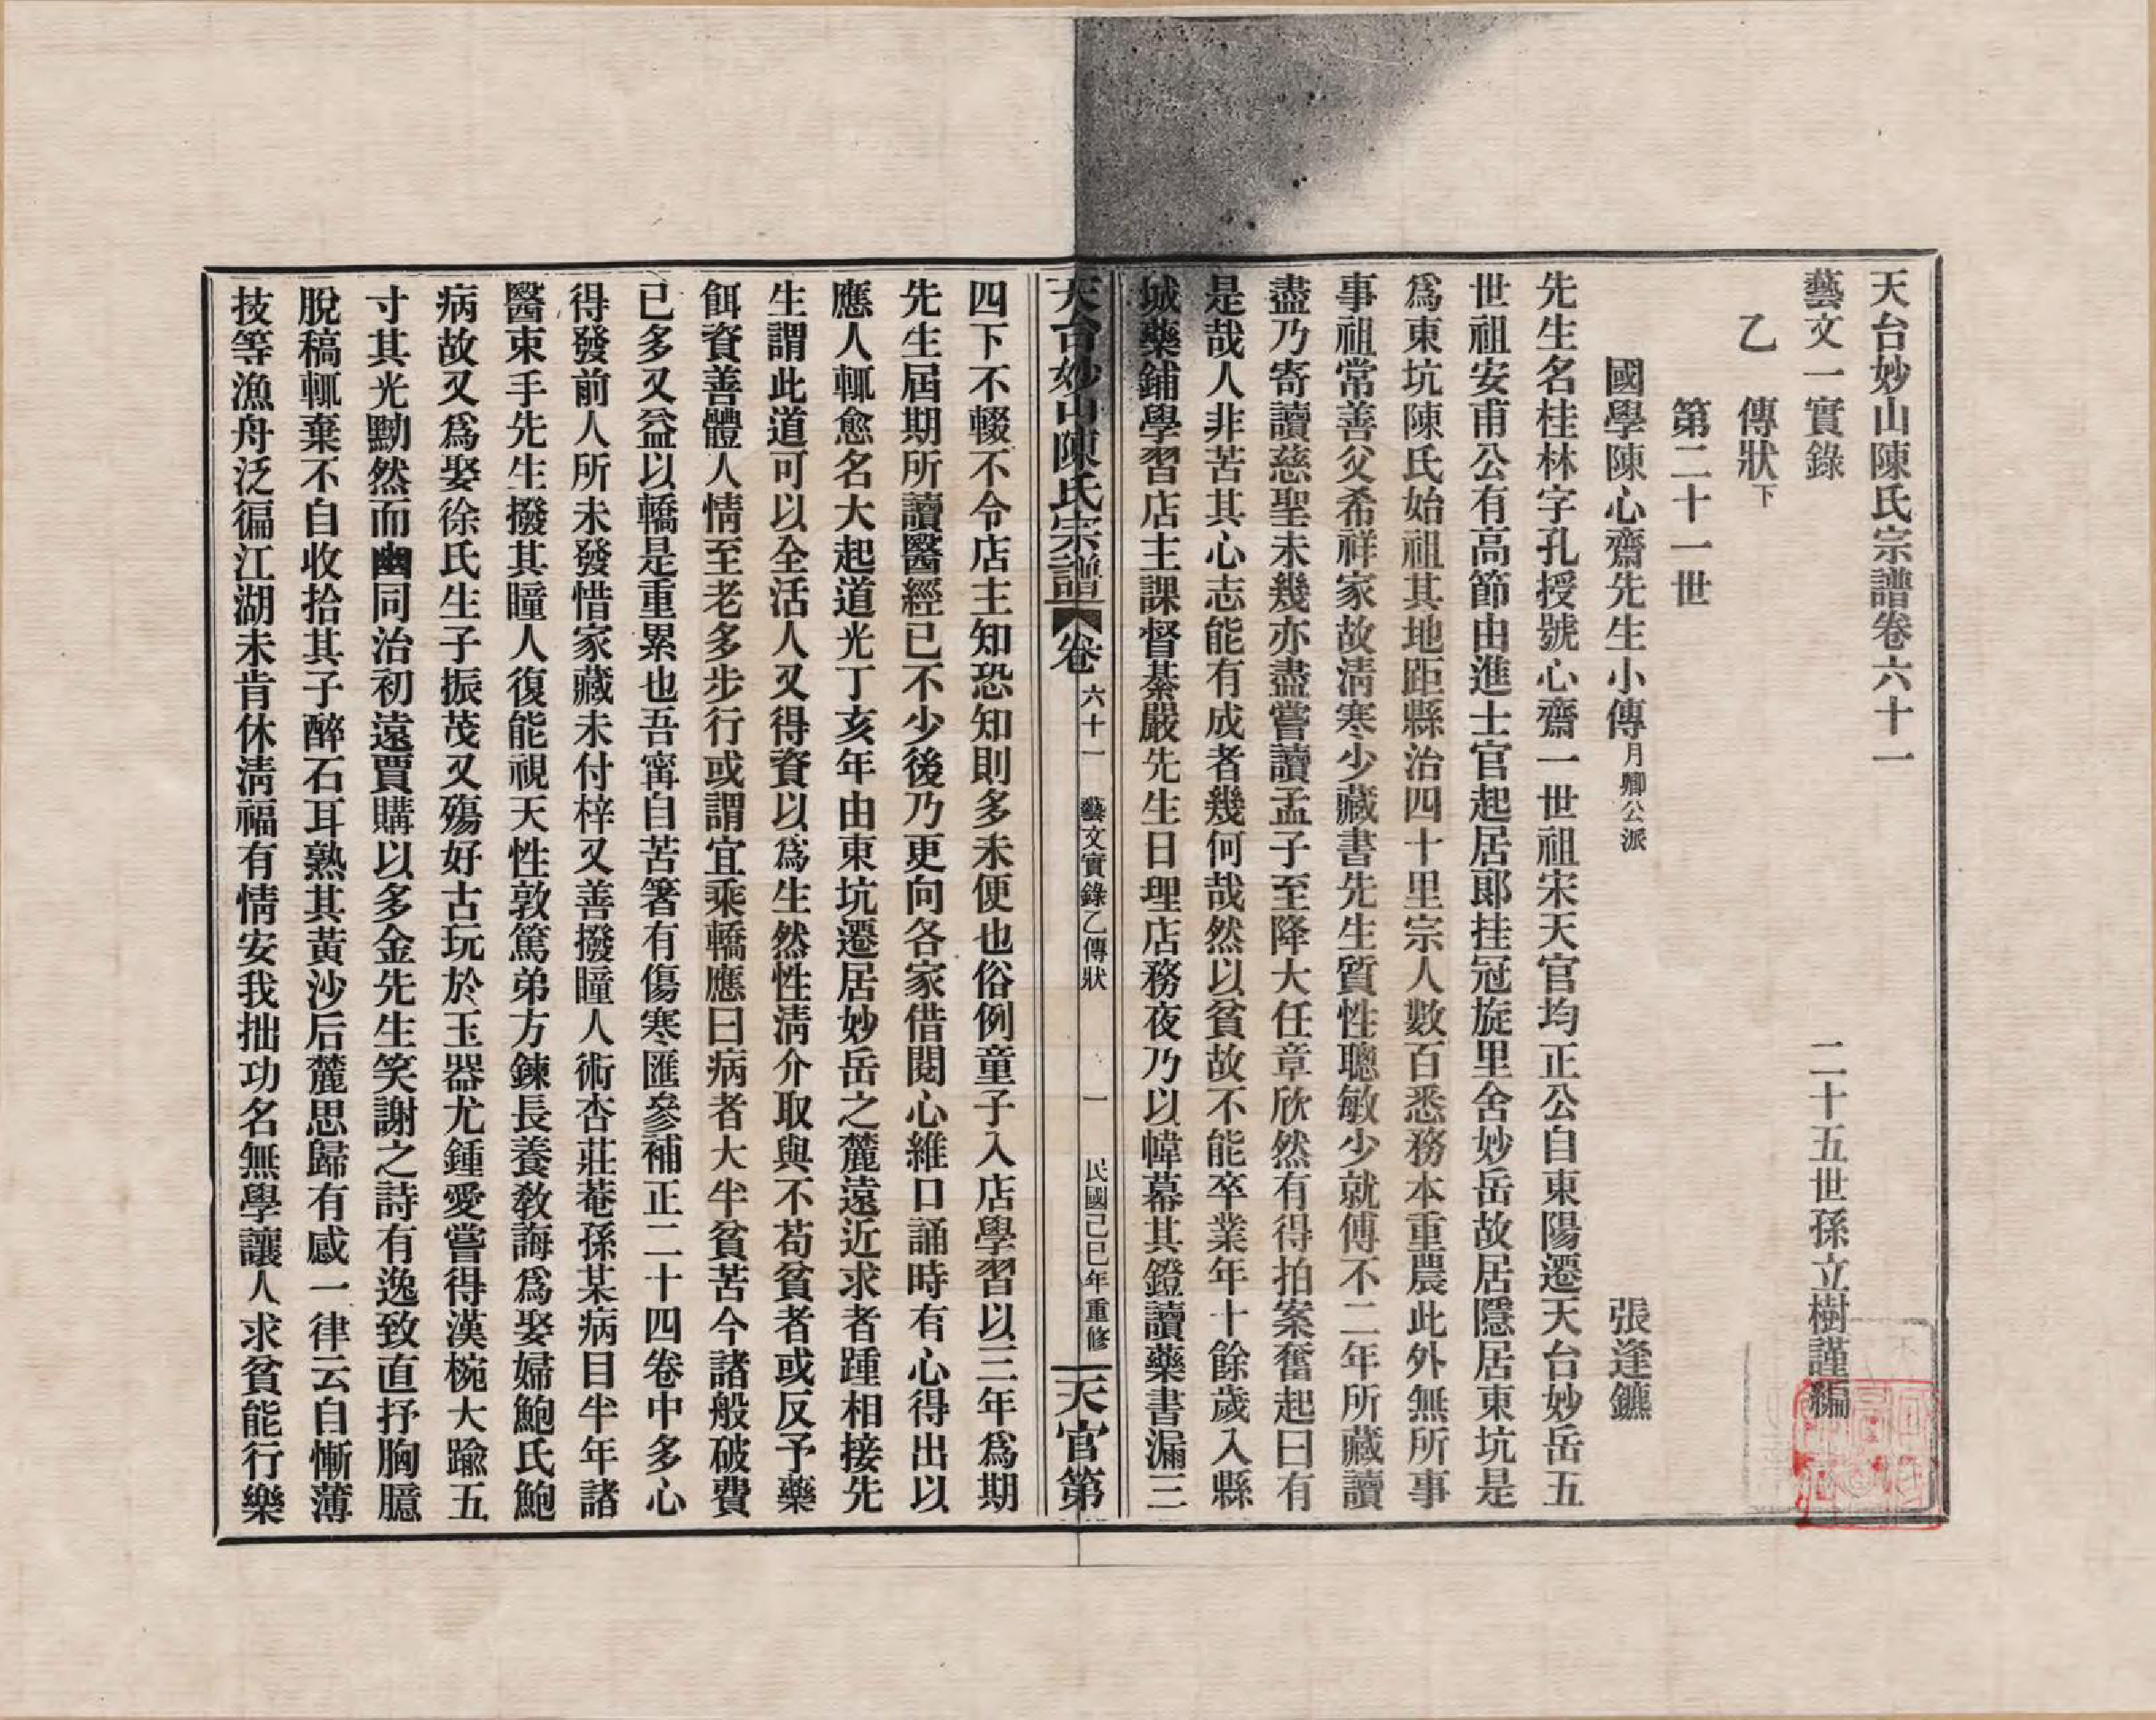 天台妙山陳氏宗譜卷六十一
藝文一實錄　二十五世孫立樹謹編
乙　傳狀下
第二十一世
國學陳心齋先生小傳月卿公派　張逢鑣
先生名桂林字孔授號心齋一世祖宋天官均正公自東陽遷天台妙岳五
世祖安甫公有高節由進士官起居郎挂冠旋里舍妙岳故居隱居東坑是
爲東坑陳氏始祖其地距縣治四十里宗人數百悉務本重農此外無所事
事祖常善父希祥家故清寒少藏書先生質性聰敏少就傅不二年所藏讀
盡乃寄讀慈聖未幾亦盡嘗讀孟子至降大任章欣然有得拍案奮起曰有
是哉人非苦其心志能有成者幾何哉然以貧故不能卒業年十餘歲入縣
城藥鋪學習店主課督綦嚴先生日理店務夜乃以幃幕其鐙讀藥書漏三
天台妙山陳氏宗譜　卷六十一　藝文實錄乙傳狀　一　民國己巳年重修　天官第
四下不輟不令店主知恐知則多未便也俗例童子入店學習以三年爲期
先生屆期所讀醫經已不少後乃更向各家借閱心維口誦時有心得出以
應人輒愈名大起道光丁亥年由東坑遷居妙岳之麓遠近求者踵相接先
生謂此道可以全活人又得資以爲生然性清介取與不苟貧者或反予藥
餌資善體人情至老多步行或謂宜乘轎應曰病者大半貧苦今諸般破費
已多又益以轎是重累也吾甯自苦箸有傷寒匯參補正二十四卷中多心
得發前人所未發惜家藏未付梓又善撥瞳人術杏莊菴孫某病目半年諸
醫束手先生撥其瞳人復能視天性敦篤弟方鍊長養教誨爲娶婦鮑氏鮑
病故又爲娶徐氏生子振茂又殤好古玩於玉器尤鍾愛嘗得漢椀大踰五
寸其光黝然而幽同治初遠賈購以多金先生笑謝之詩有逸致直抒胸臆
脫稿輒棄不自收拾其子醉石耳熟其黃沙后麓思歸有感一律云自慚薄
技等漁舟泛徧江湖未肯休清福有情安我拙功名無學讓人求貧能行樂